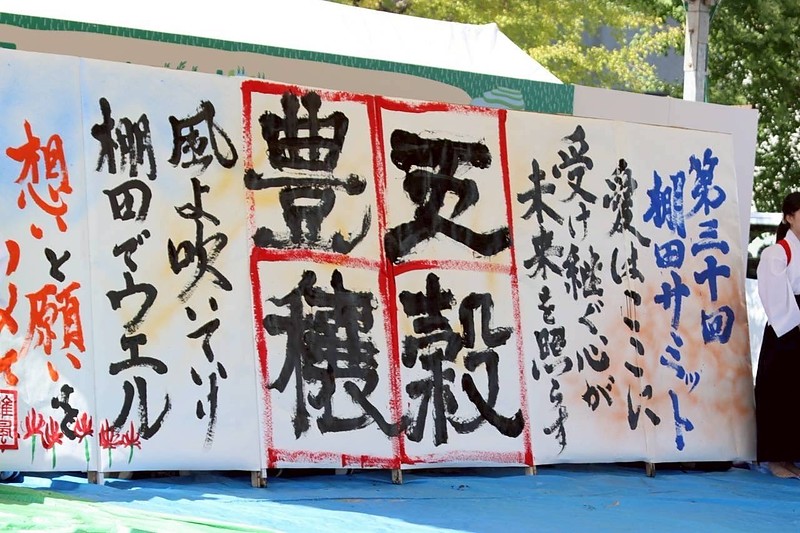 第三十回
棚田サミット
愛はここに
受け継ぐ心が
未来を照らす
五穀
豊穣
風よ吹いていけ
棚田でウエル
想いと願いを